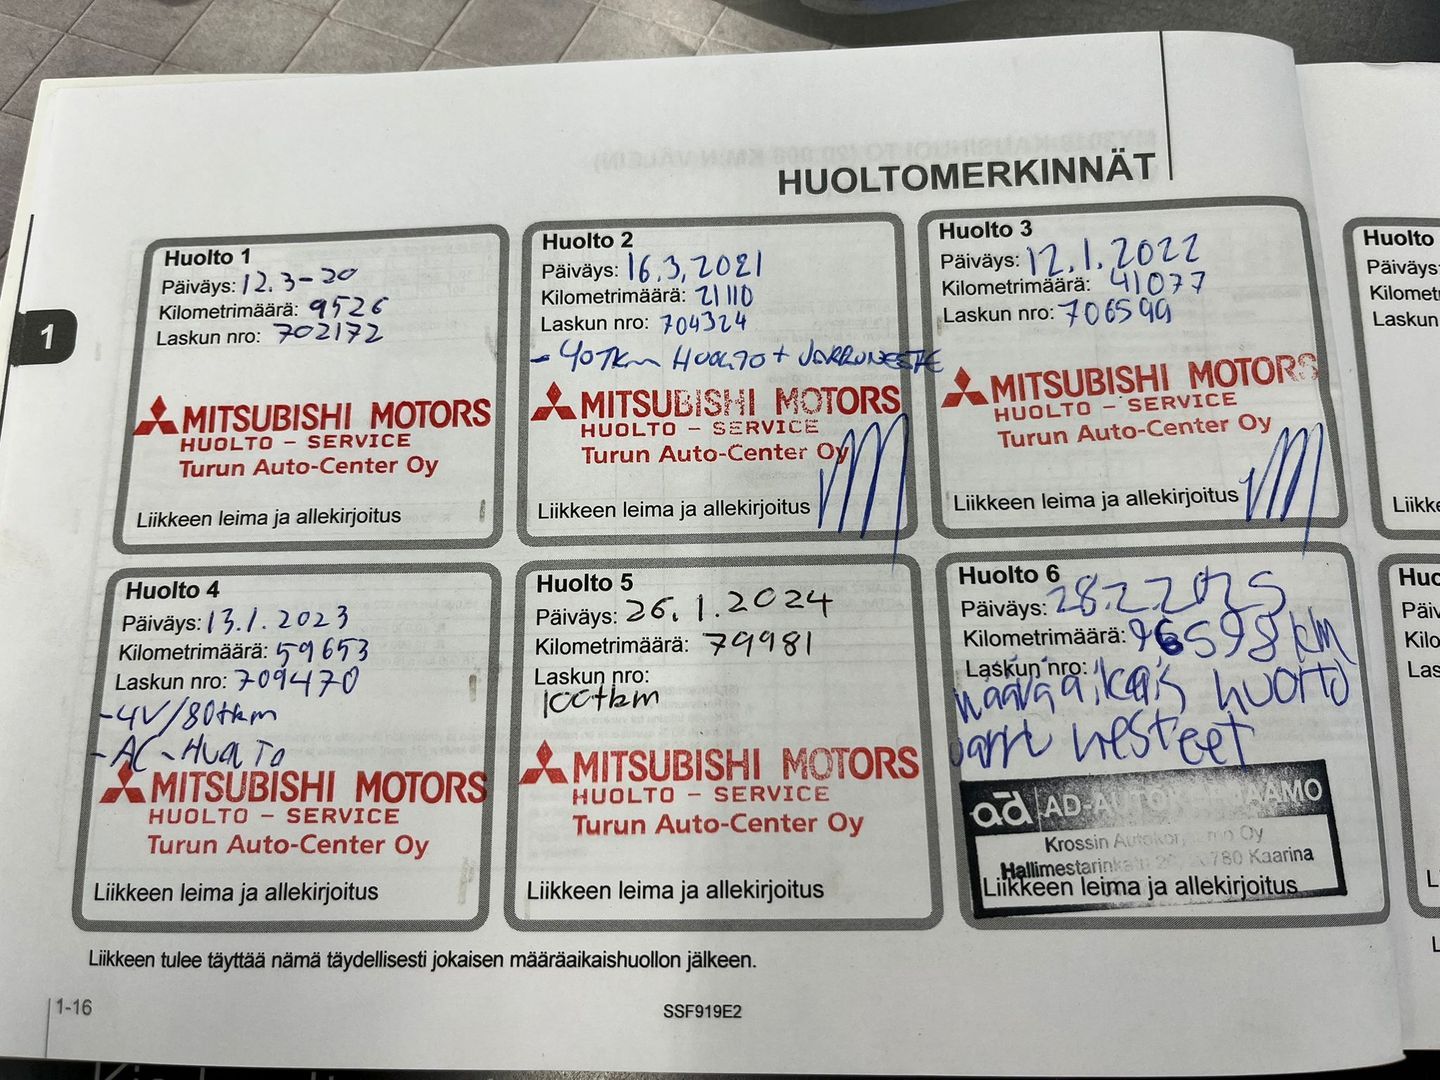 HUOLTOMERKINNÄT
1
Huolto 1
Päiväys: 12.3-20
Kilometrimäärä: 9526
Laskun nro: 702172
MITSUBISHI MOTORS
HUOLTO - SERVICE
Turun Auto-Center Oy
Liikkeen leima ja allekirjoitus
Huolto 2
Päiväys: 16.3.2021
Kilometrimäärä: 21110
Laskun nro: 704324
- 40TKm HUOLTO + JARRUNESTE
MITSUBISHI MOTORS
HUOLTO - SERVICE
Turun Auto-Center Oy
Liikkeen leima ja allekirjoitus
Huolto 3
Päiväys: 12.1.2022
Kilometrimäärä: 41077
Laskun nro: 706599
MITSUBISHI MOTORS
HUOLTO - SERVICE
Turun Auto-Center Oy
Liikkeen leima ja allekirjoitus
Huolto
Päiväys
Laskun
Huolto 4
Päiväys: 13.1.2023
Kilometrimäärä: 59653
Laskun nro: 709470
-4V/80tkm
-AC-HUOLTO
MITSUBISHI MOTORS
HUOLTO - SERVICE
Turun Auto-Center Oy
Liikkeen leima ja allekirjoitus
Huolto 5
Päiväys: 26.1.2024
Kilometrimäärä: 79981
Laskun nro:
100tkm
MITSUBISHI MOTORS
HUOLTO - SERVICE
Turun Auto-Center Oy
Liikkeen leima ja allekirjoitus
Huolto 6
Päiväys: 28.2.2025
Kilometrimäärä: 96598km
Laskun nro:
määräaikais huolto
Jarru nesteet
ad AD-AUTOKORJAAMO
Krossin Autokorjaamo Oy
Hallimestarinkatu 20780 Kaarina
Liikkeen leima ja allekirjoitus
Liikkeen tulee täyttää nämä täydellisesti jokaisen määräaikaishuollon jälkeen.
1-16
SSF919E2